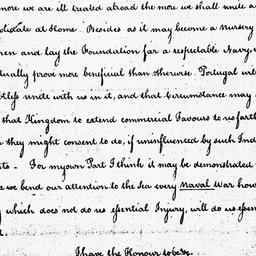 more we are ill treated abroad the more we shall unite a
olidate at Home. Besides as it may become a Nursery
men and lay the Foundation for a respectable Navy,
tually prove more beneficial than otherwise. Portugal will
btless unite with us in it, and that Circumstance may
that Kingdom to extend commercial Favours to us farth
they might consent to do, if uninfluenced by such Ind
ts — For my own Part I think it may be demonstrated
e we bend our attention to the Sea every Naval War how
which does not do us essential Injury, will do us essen
I have the Honour to be &c.